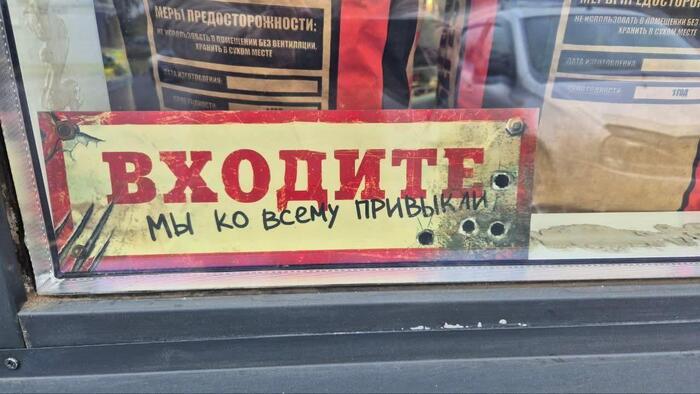 МЕРЫ ПРЕДОСТОРОЖНОСТИ:
НЕ ИСПОЛЬЗОВАТЬ В ПОМЕЩЕНИИ БЕЗ ВЕНТИЛЯЦИИ,
ХРАНИТЬ В СУХОМ МЕСТЕ
ДАТА ИЗГОТОВЛЕНИЯ
МЕРЫ ПРЕДОСТОРОЖНОСТИ:
НЕ ИСПОЛЬЗОВАТЬ В ПОМЕЩЕНИИ БЕЗ ВЕНТИЛЯЦИИ,
ХРАНИТЬ В СУХОМ МЕСТЕ
ДАТА ИЗГОТОВЛЕНИЯ
1 ГОД
ВХОДИТЕ
МЫ КО ВСЕМУ ПРИВЫКЛИ